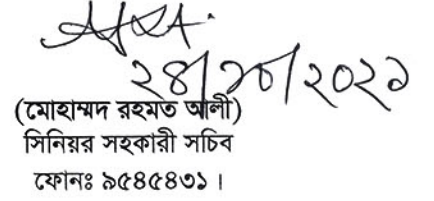 ২৪/১০/২০২১
(মোহাম্মদ রহমত আলী)
সিনিয়র সহকারী সচিব
ফোনঃ ৯৫৪৫৪৩১ ।